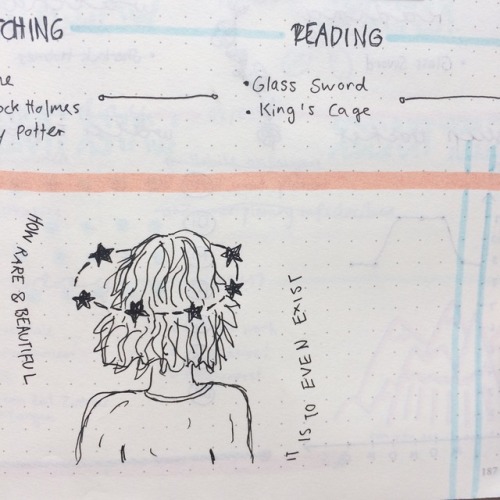 TCHING
READING
ne
ock Holmes
y Potter
• Glass Sword
• King's Cage
HOW RARE & BEAUTIFUL
IT IS TO EVEN EXIST
187